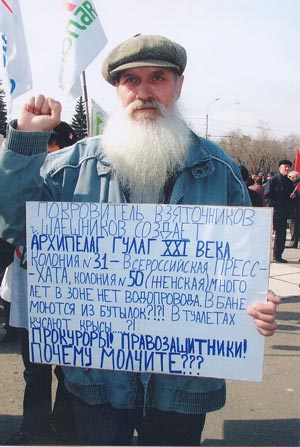 ПОКРОВИТЕЛЬ ВЗЯТОЧНИКОВ
И ШАЕШНИКОВ СОЗДАЕТ
АРХИПЕЛАГ ГУЛАГ XXI ВЕКА
КОЛОНИЯ №31-ВСЕРОССИЙСКАЯ ПРЕСС-
-ХАТА, КОЛОНИЯ №50 (НЕНСКАЯ) МНОГО
ЛЕТ В ЗОНЕ НЕТ ВОДОПРОВОДА. В БАНЕ
МОЮТСЯ ИЗ БУТЫЛОК?!?! В ТУАЛЕТАХ
КУСАЮТ КРЫСЫ....?!
ПРОКУРОРЫ!! ПРАВОЗАЩИТНИКИ!
ПОЧЕМУ МОЛЧИТЕ???